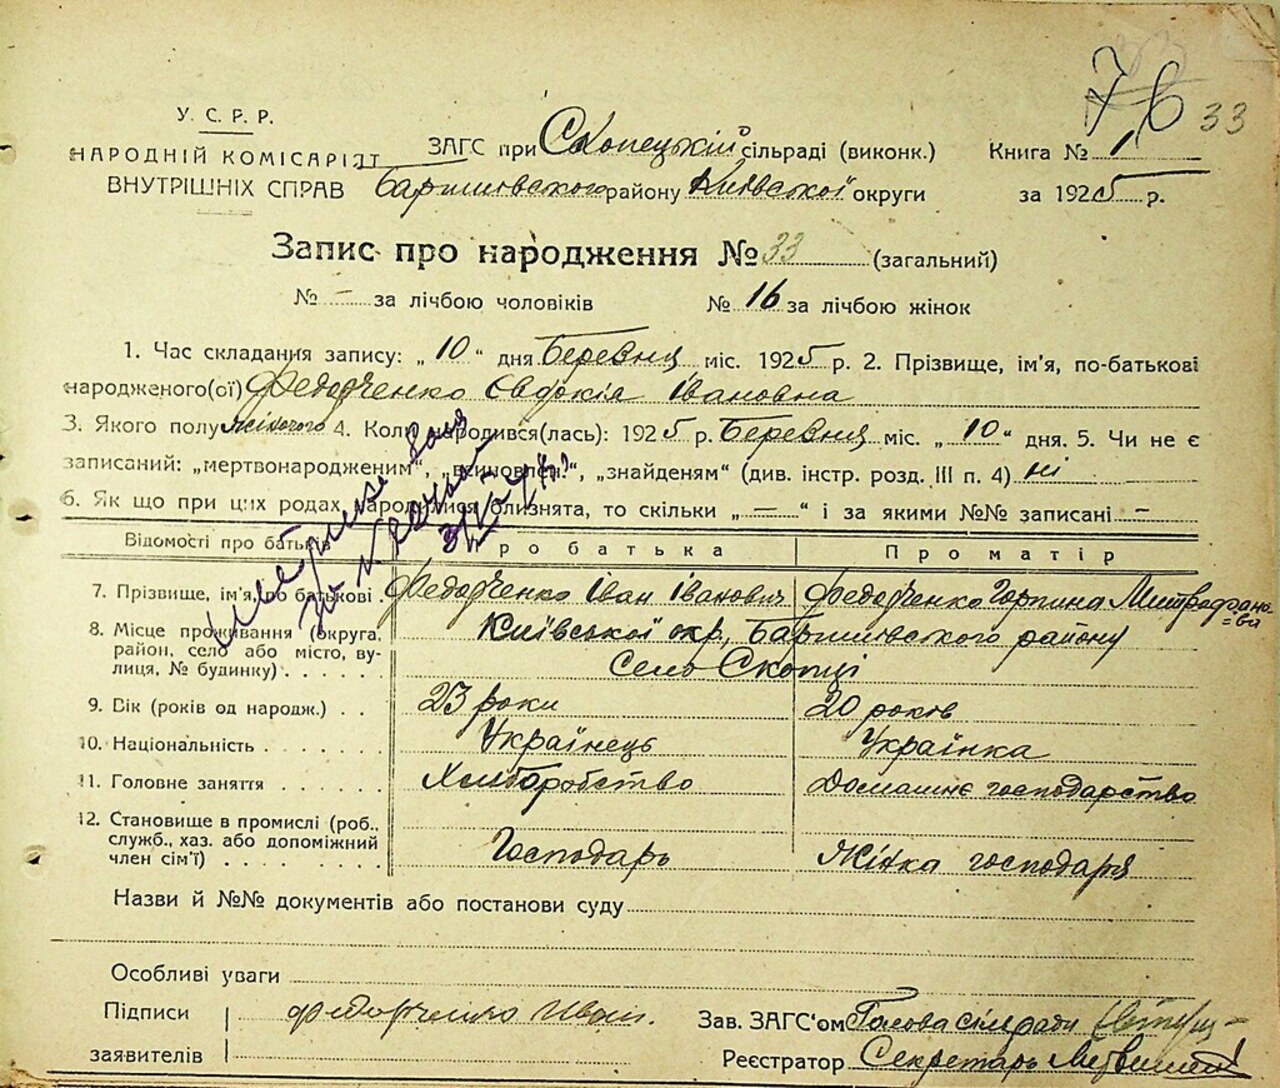 33
7, 6
33
У. С. Р. Р.
НАРОДНІЙ КОМІСАРІЯТ
ВНУТРІШНІХ СПРАВ
ЗАГС при Скопецькій сільраді (виконк.)
Книга № 1
Баришівського району Київської округи
за 1925 р.
Запис про народження № 33 (загальний)
№ – за лічбою чоловіків № 16 за лічбою жінок
1. Час складання запису: „ 10 “ дня Березня міс. 1925 р. 2. Прізвище, ім'я, по-батькові
народженого(ої) Федорченко Євдокія Івановна
3. Якого полу жіночого 4. Коли народився(лась): 1925 р. Березня міс. „ 10 “ дня. 5. Чи не є
записаний: „мертвонародженим“, „вкиновлен.“, „знайденям“ (див. інстр. розд. III п. 4) ні
6. Як що при цих родах народилися близнята, то скільки „ — “ і за якими №№ записані –
Відомості про батьків Про батька Про матір
7. Прізвище, ім'я, по батькові . Федорченко Іван Іванович Федорченко Горпина Митрофано=
=вн
8. Місце проживання (округа, Київської окр, Баришівського району
район, село або місто, ву-
лиця, № будинку) . . . . . . Село Скопці
9. Вік (років од народж.) . . 23 роки 20 років
10. Національність . . . . . . . Українець Українка
11. Головне заняття . . . . . . Хліборобство Домашнє господарство
12. Становище в промислі (роб.,
служб., хаз. або допоміжний
член сім'ї) . . . . . . . . Господарь Жінка господаря
Назви й №№ документів або постанови суду
Особливі уваги
Підписи Федорченко Иван.
заявителів
Зав. ЗАГС'ом Голова сільради
Реєстратор Секретарь